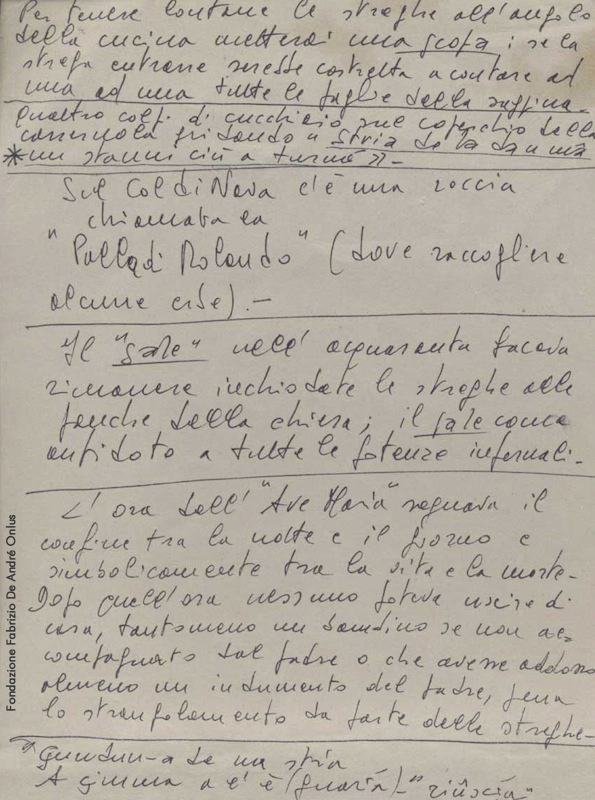 Per tenere lontane le streghe all'angolo
della cucina metterai una scopa; se la
strega entrasse sarebbe costretta a contare ad
una ad una tutte le paglie della saggina-
Quattro colpi di cucchiaio sul coperchio della
casseruola gridando "stria de la
* un turna"-
Sul Col di Nava c'è una roccia
chiamata la
"Palla di Rolando" (dove raccogliere
alcune erbe).-
Il "sale" nell'acquasanta faceva
rimanere inchiodate le streghe alle
panche della chiesa; il sale come
antidoto a tutte le potenze infernali-
L'ora dell'"Ave Maria" segnava il
confine tra la notte e il giorno e
simbolicamente tra la vita e la morte-
Dopo quell'ora nessuno poteva uscire di
casa, tantomeno un bambino se non ac=
compagnato dal padre o che avesse addosso
almeno un indumento del padre, pena
lo strangolamento da parte delle streghe-
de na stria
A çimma a l'è (guaría)-"
Fondazione Fabrizio De André Onlus